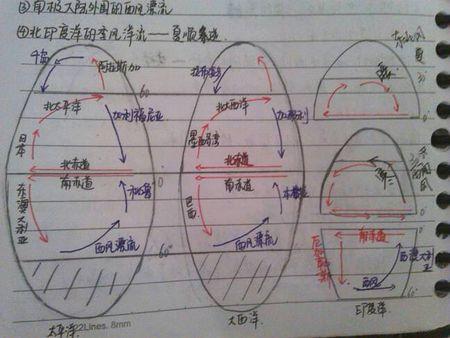 ③南极大陆外围的西风漂流
④北印度洋的季风洋流——夏顺冬逆
千岛
阿拉斯加
60
北太平洋
加利福尼亚
日本
北赤道
南赤道
0
东澳大利亚
秘鲁
西风漂流
60°
太平洋
拉布拉多
北大西洋
加那利
墨西哥湾
北赤道
南赤道
巴西
本格拉
西风漂流
大西洋
夏
0°
冬
0°
南赤道
西澳大利亚
西风
印度洋
22Lines. 8mm